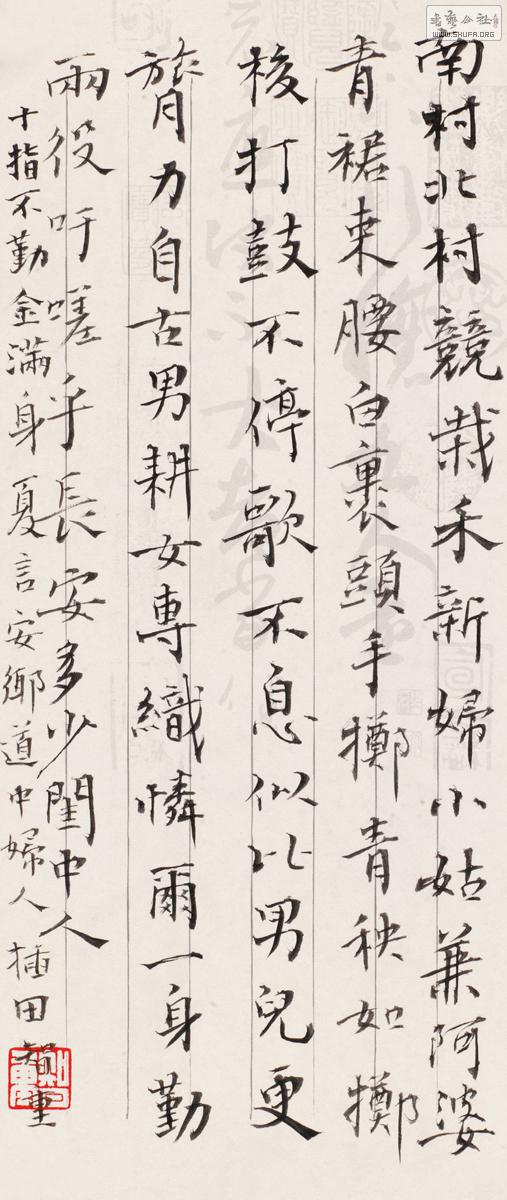 南村北村競栽禾新婦小姑兼阿婆
青裙束腰白裹頭手擲青秧如擲
梭打鼓不停歌不息似比男兒更
膂力自古男耕女專織憐爾一身勤
兩役吁嗟乎長安多少閨中人
十指不勤金滿身夏言安鄉道中婦人插田智重
書藝公社
WWW.SHUFA.ORG